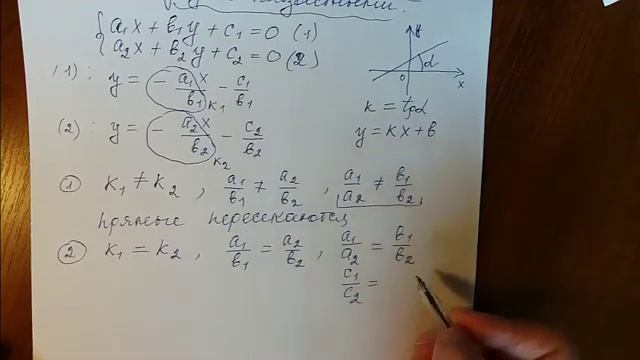 a₁x + b₁y + c₁ = 0 (1)
a₂x + b₂y + c₂ = 0 (2)
y
α
0
x
(1): y = - a₁x/b₁ - c₁/b₁
k₁
k = tgα
(2): y = - a₂x/b₂ - c₂/b₂
k₂
y = kx + b
① k₁ ≠ k₂ , a₁/b₁ ≠ a₂/b₂ , a₁/a₂ ≠ b₁/b₂,
прямые пересекаются
② k₁ = k₂ , a₁/b₁ = a₂/b₂ , a₁/a₂ = b₁/b₂
c₁/c₂ =